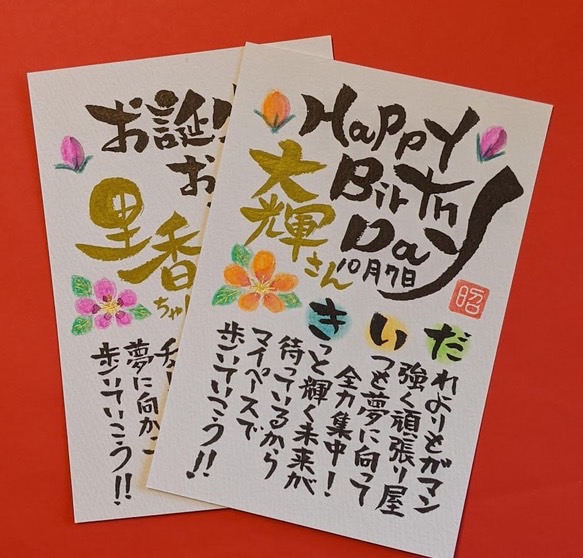 Happy
Birth
Day
大輝さん
10月7日
昭
だれよりもガマン
強く頑張り屋
いつも夢に向って
全力集中!
きっと輝く未来が
待っているから
マイペースで
歩いていこう!!
お誕
お
里香
ちゃ
夢に向かっ
歩いていこう!!